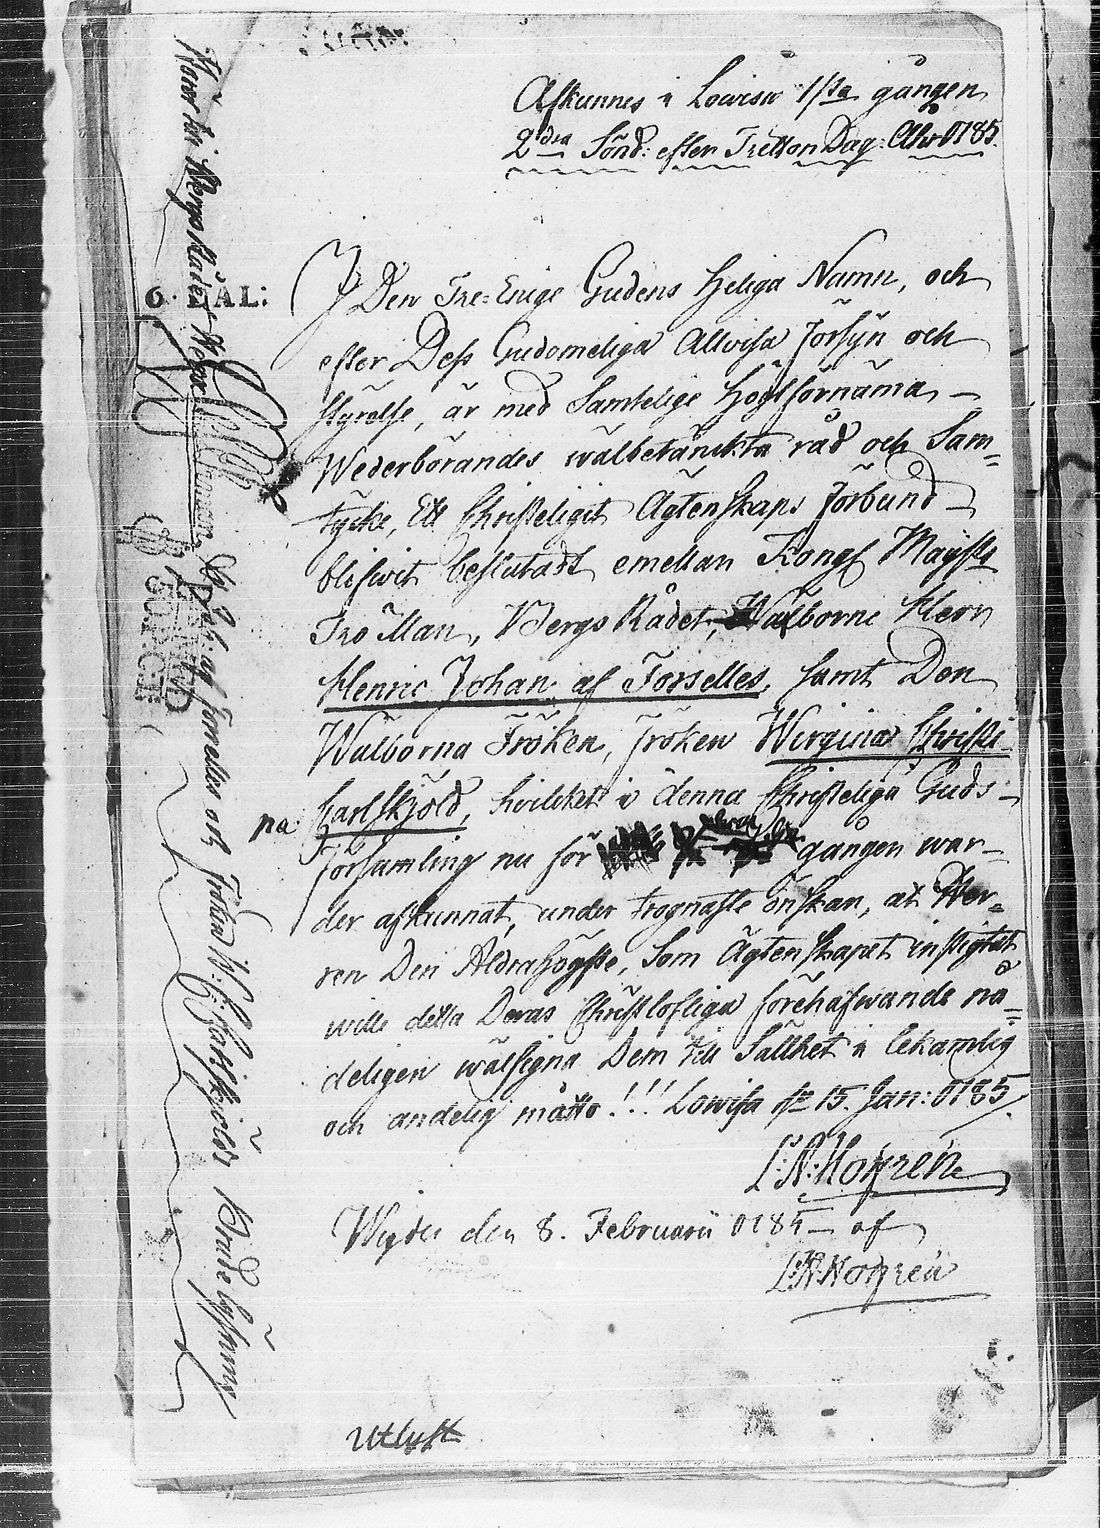 Afkunnes i Lowisa 1sta gången
2dra Sönd: efter Tretton Dag: Åhr 0185.
I Den Tre=Enige Gudens Heliga Namn, och
efter Dess Gudomeliga Allvisa Försyn och
styrelse, är med Samtelige Högtförnäma
Wederbörandes wälbetänckta råd och Sam=
tycke, Ett Christeligit Ägtenskaps förbund
blifwit beslutadt emellan Kongl Maÿsts
Tro Man, Bergs Rådet, Wälborne Herr
Henric Johan af Forselles, samt Den
Wälborna Fröken, Fröken Wirgina Christi
na Carlskjöld, hvilcket i denna Christeliga Guds=
församling nu för gången war=
der afkunnat, under trognaste önskan, at Her=
ren Den Aldrahögste, Som Ägtenskapet instigtat
wille detta Deras Christlofliga förehafwande nå=
deligen wälsigna Dem till Sällhet i lekamlig
och andelig måtto!!! Lowisa de 15. Jan: 0185
L:N:Norrén
Wigde den 8. Februarii 0185 af
L:N:Norrén
Utlyst
6. DAL:
af Forselles och Fröken W: C: Carlskjöld